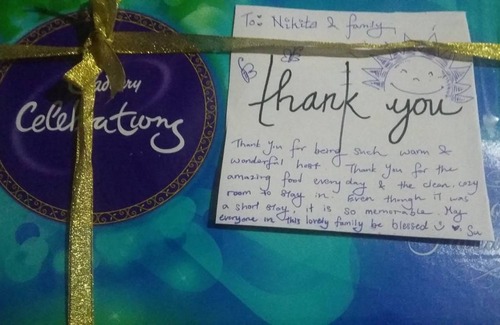 Cadbury
Celebrations
To: Nikita & family
thank you
Thank you for being such warm &
wonderful host. Thank you for the
amazing food everyday & the clean, cozy
room to stay in. Even though it was
a short stay, it is so memorable. May
everyone in this lovely family be blessed